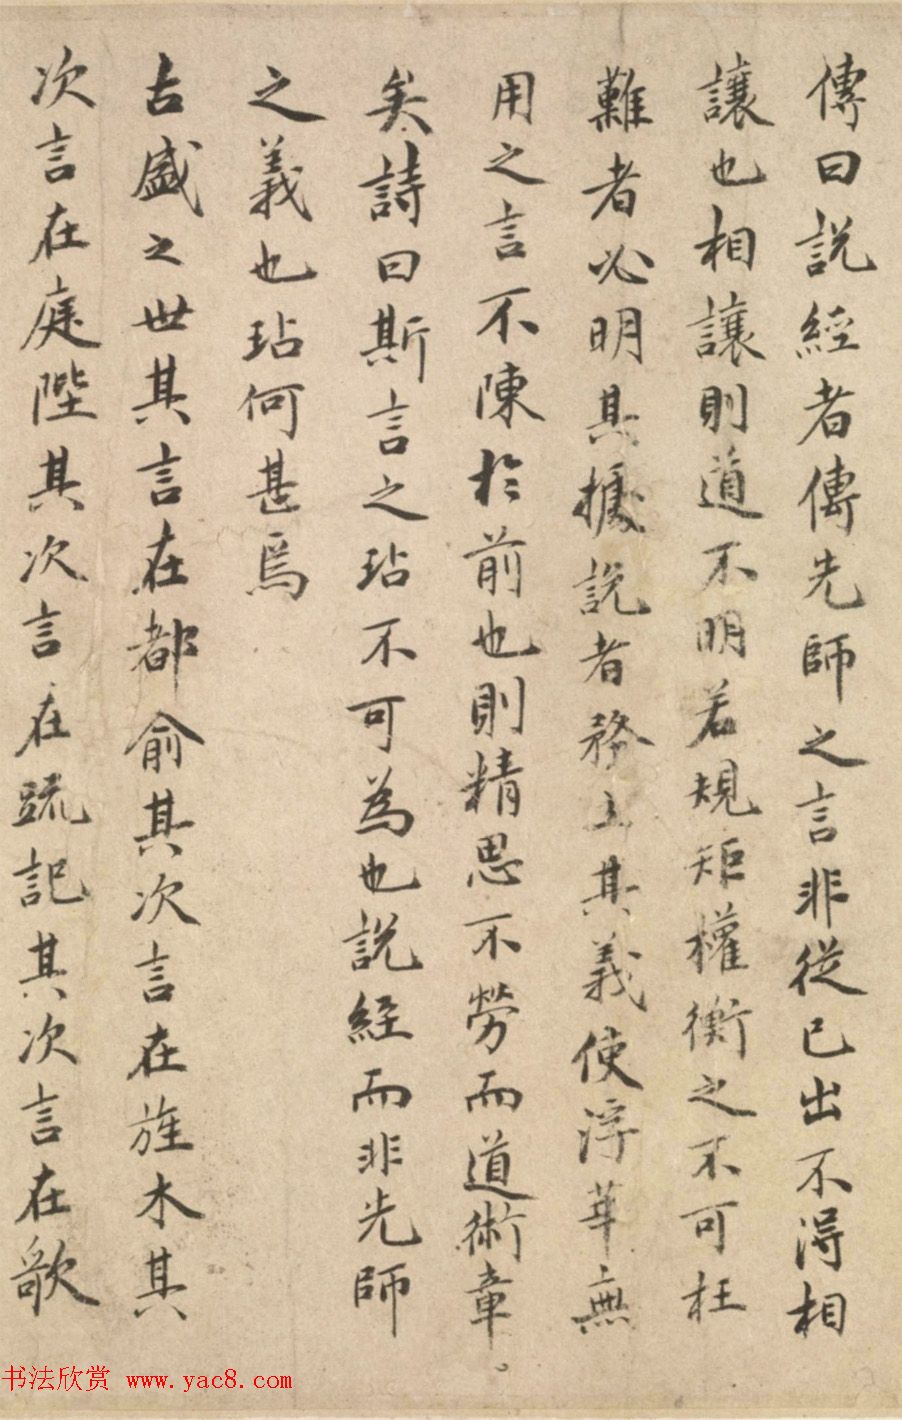 傳曰說經者傳先師之言非從己出不得相
讓也相讓則道不明若規矩權衡之不可枉
難者必明其據說者務立其義使浮華無
用之言不陳於前也則精思不勞而道術章。
矣詩曰斯言之玷不可為也說經而非先師
之義也玷何甚焉
古盛之世其言在都俞其次言在旌木其
次言在庭陛其次言在疏記其次言在歌
书法欣赏 www.yac8.com